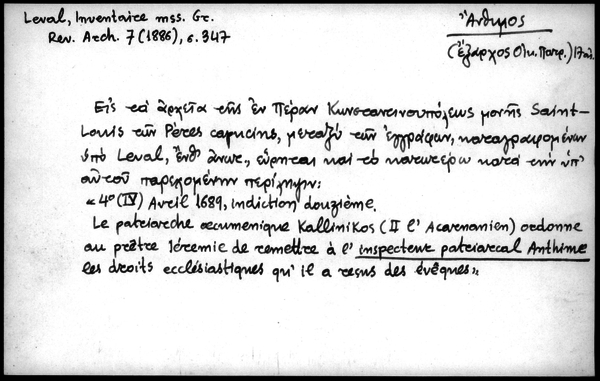 Leval, Inventaire mss. Gr.
Rev. Arch. 7 (1886), σ. 347
Ἄνθιμος
(Ἔξαρχος Οἰκ. Πατρ.) 17 αἰ.
Εἰς τὰ ἀρχεῖα τῆς ἐν Πέραν Κωνσταντινουπόλεως μονῆς Saint-
Louis τῶν Pères capucins, μεταξὺ τῶν ἐγγράφων, καταγραφομένων
ὑπὸ Leval, ἔνθ' ἀνωτ., εὕρηται καὶ τὸ κατωτέρω κατὰ τὴν ὑπ'
αὐτοῦ παρεχομένην περίληψιν:
« 4º (IV) Avril 1689, indiction douzième.
Le patriarche œcumenique Kallinikos (II l' Acarnanien) ordonne
au prêtre Jéremie de remettre à l' inspecteur patriarcal Anthime
les droits ecclésiastiques qu' il a reçus des évêques».